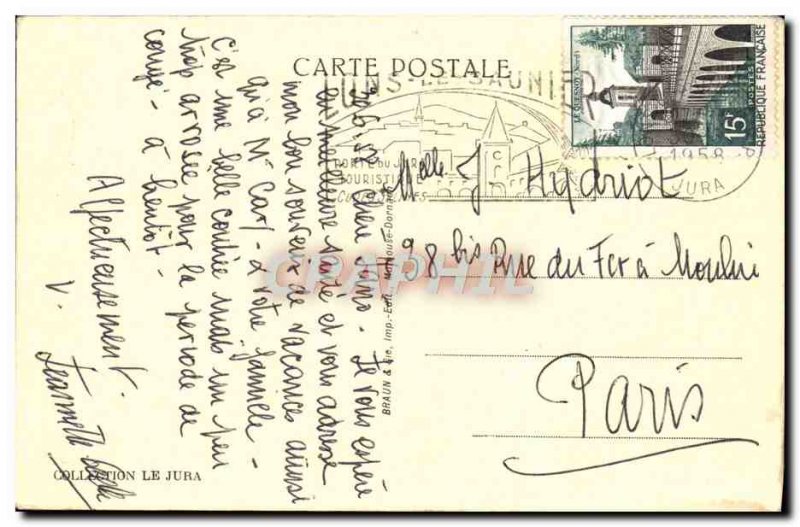 CARTE POSTALE
LONS-LE-SAUNIER
PORTE DU JURA
TOURISTIQUE
1958
JURA
LE QUESNOY (Nord)
15F
POSTES
RÉPUBLIQUE FRANÇAISE
30.6.58. Chère Simo - Je vous espère
en meilleure santé et vous adresse
mon bon souvenir de vacances ainsi
qu'à Mr Carl - à votre famille -
C'est une belle contrée mais un peu
trop arrosée pour la période de
congé - à bientôt -
Affectueusement.
V.
Melle J Hydriot
98 bis Rue du Fer à Moulin
Paris
BRAUN & Cie, Imp.-Edit. Mulhouse-Dornach
CARAPHIL
COLLECTION LE JURA